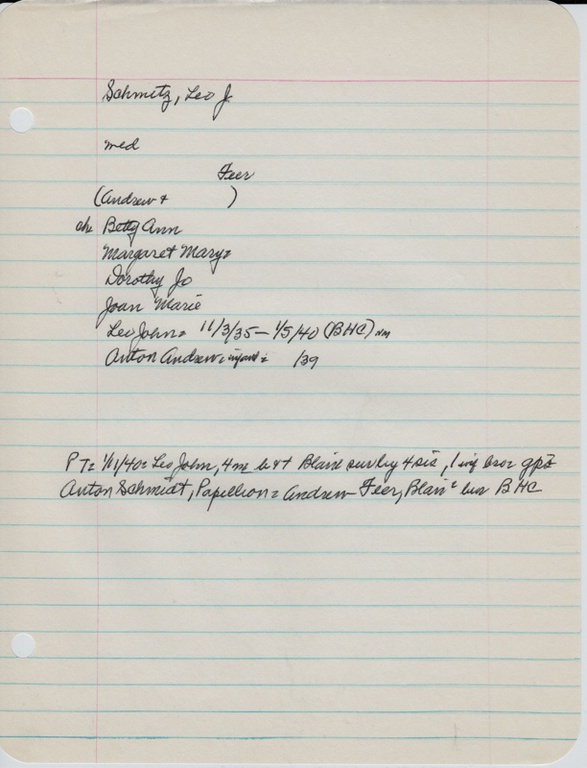 Schmitz, Leo J.
med
Feer
(Andrew + )
ch: Betty Ann
Margaret Mary:
Dorothy Jo
Joan Marie
Leo John: 11/3/35 – 1/5/40 (BHC) nm
Anton Andrew: infant: /39
PT: 1/11/40: Leo John, 4 Blair surv by 4 sis, 1 inf bro: gps
Anton Schmidt, Papillion: Andrew Feer, Blair: bur BHC